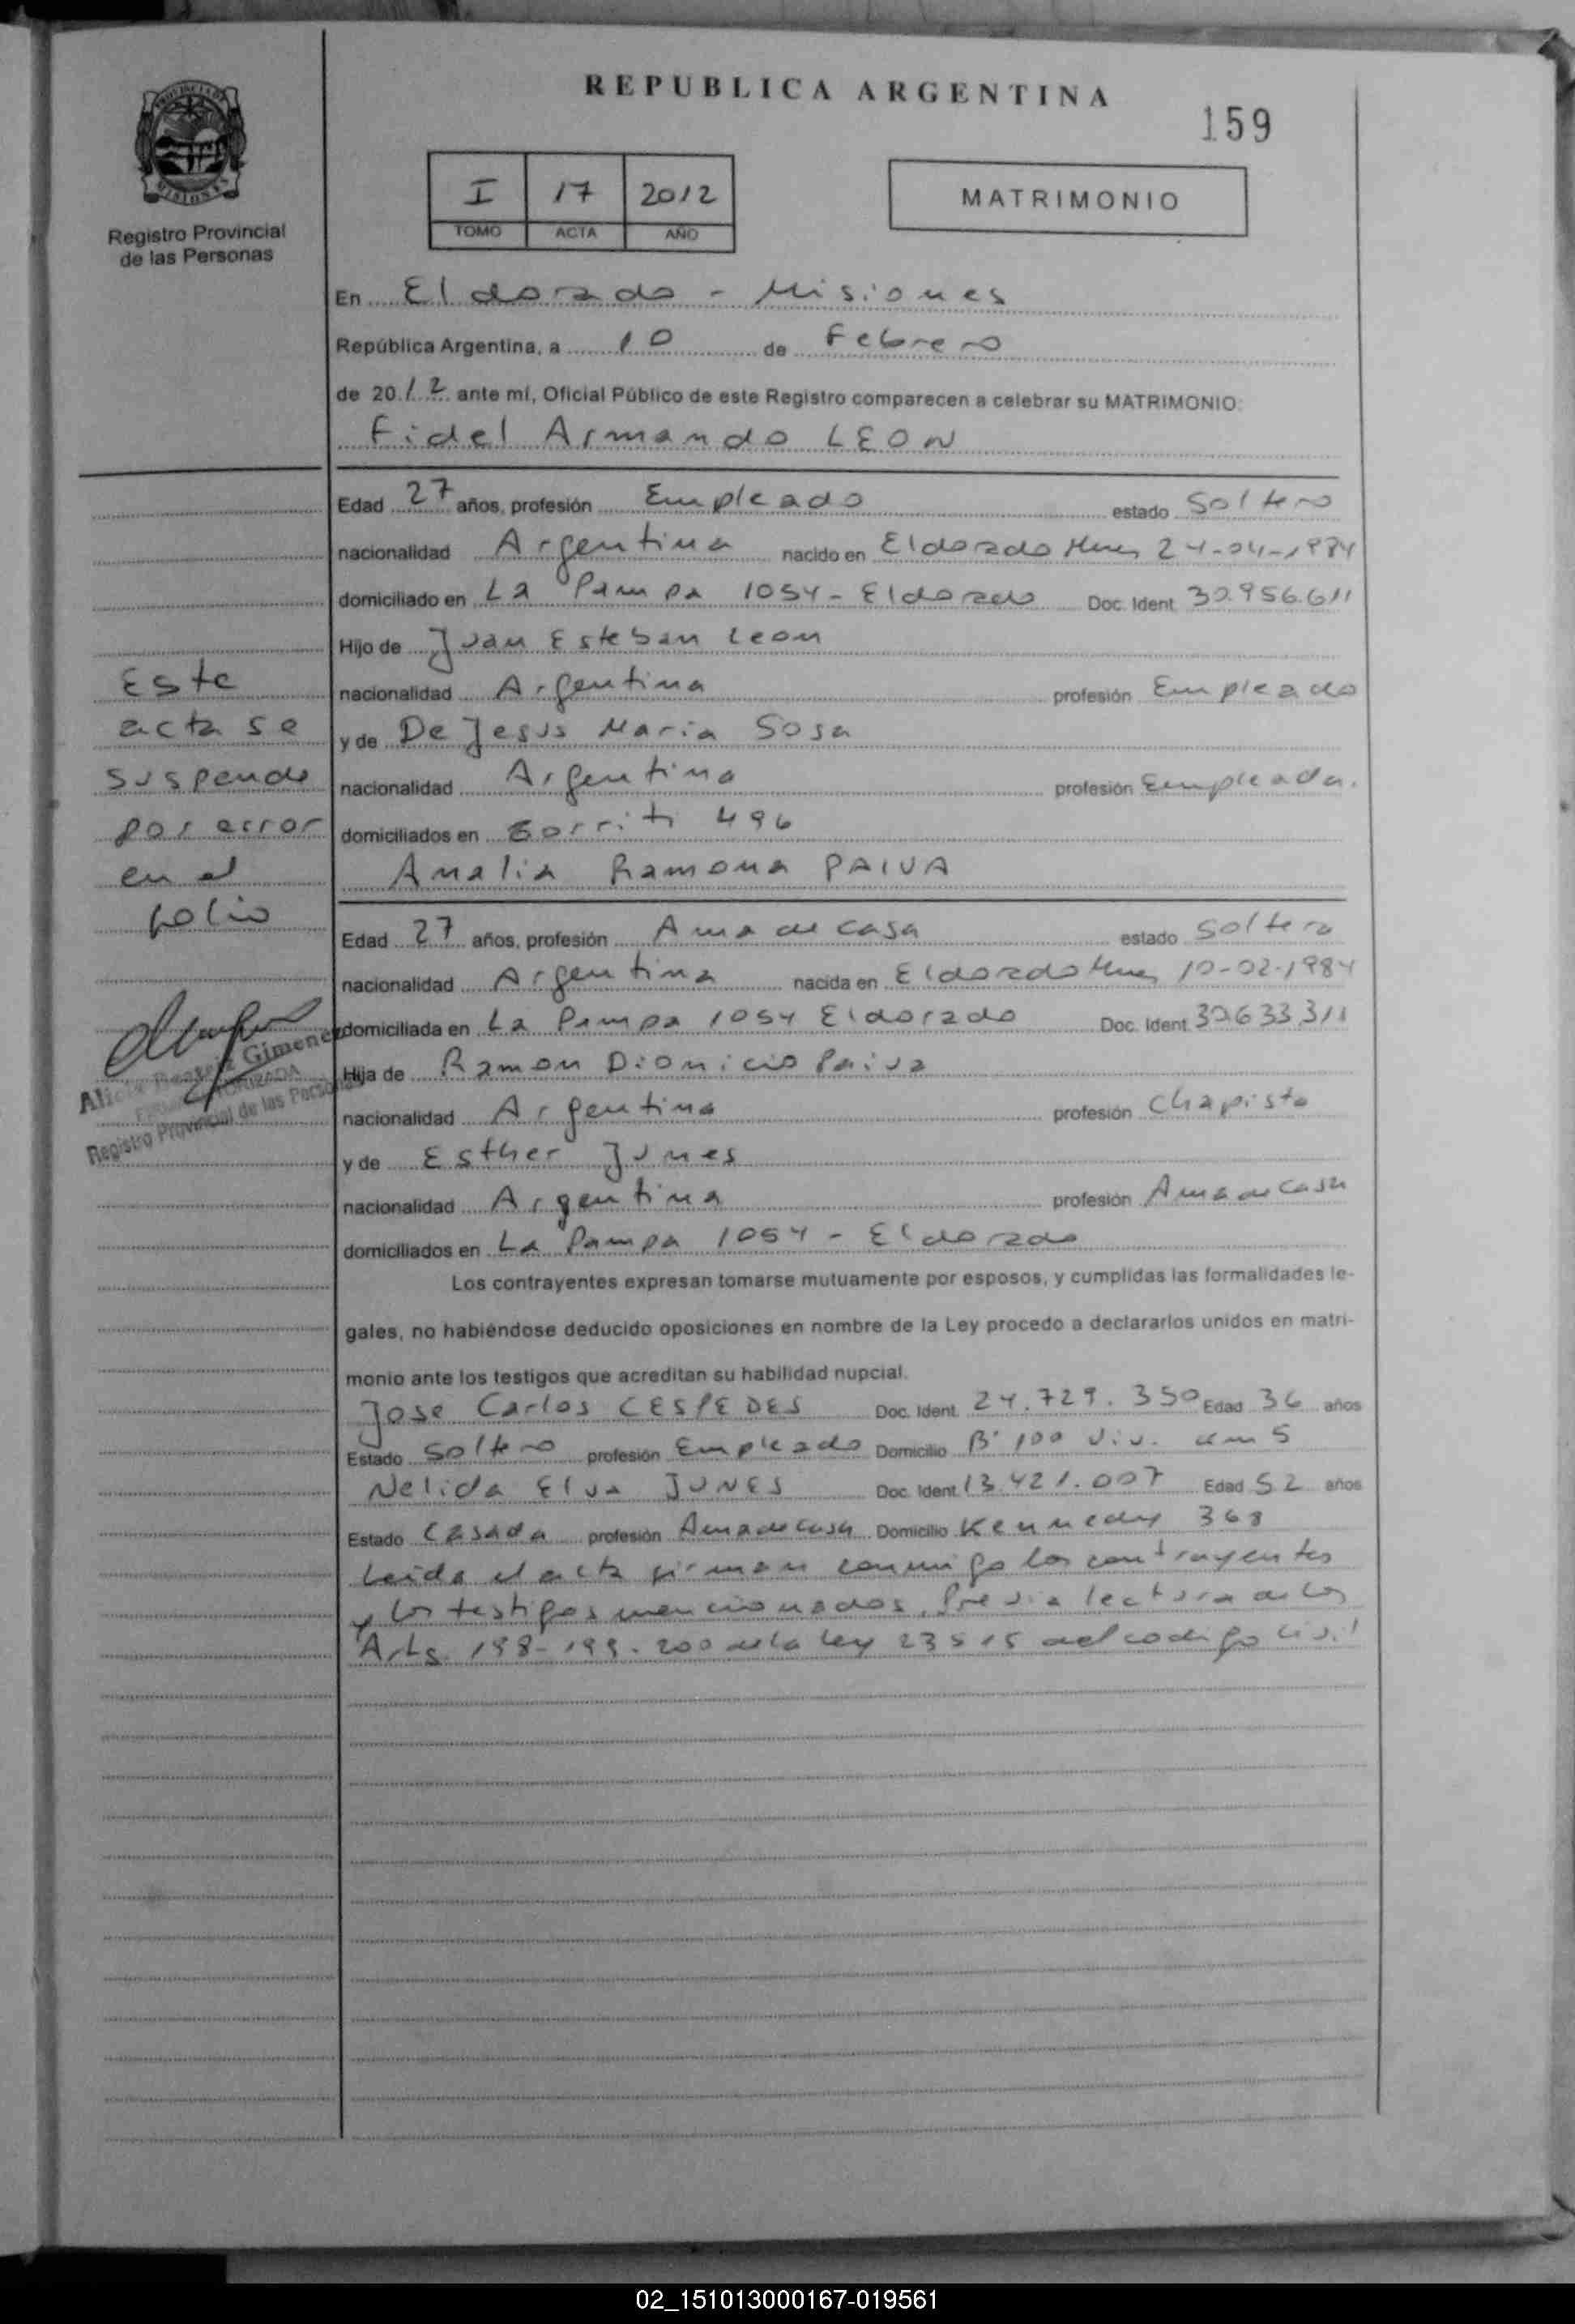 REPUBLICA ARGENTINA
159
I 17 2012
TOMO ACTA AÑO
MATRIMONIO
PROVINCIA DE
MISIONES
Registro Provincial
de las Personas
En Eldorado - Misiones
República Argentina, a 10 de Febrero
de 2012 ante mí, Oficial Público de este Registro comparecen a celebrar su MATRIMONIO:
Fidel Armando LEON
Edad 27 años, profesión Empleado estado Soltero
nacionalidad Argentina nacido en Eldorado Mnes 24-04-1984
domiciliado en La Pampa 1054 - Eldorado Doc. Ident. 30.956.611
Hijo de Juan Esteban Leon
nacionalidad Argentina profesión Empleado
y de De Jesus Maria Sosa
nacionalidad Argentina profesión Empleada.
domiciliados en Gorriti 496
Analia Ramona PAIVA
Edad 27 años, profesión Ama de casa estado Soltera
nacionalidad Argentina nacida en Eldorado Mnes 10-02-1984
domiciliada en La Pampa 1054 Eldorado Doc. Ident. 30.633.311
Hija de Ramon Dionicio Paiva
nacionalidad Argentina profesión Chapista
y de Esther Junes
nacionalidad Argentina profesión Ama de casa
domiciliados en La Pampa 1054 - Eldorado
Los contrayentes expresan tomarse mutuamente por esposos, y cumplidas las formalidades le-
gales, no habiéndose deducido oposiciones en nombre de la Ley procedo a declararlos unidos en matri-
monio ante los testigos que acreditan su habilidad nupcial.
Jose Carlos CESPEDES Doc. Ident. 24.729.350 Edad 36 años
Estado Soltero profesión Empleado Domicilio B° 100 Viv. km 5
Nelida Elva JUNES Doc. Ident. 13.421.007 Edad 52 años
Estado Casada profesión Ama de casa Domicilio Kennedy 368
Leida el acta firman conmigo los contrayentes
y los testigos mencionados. Previa lectura de los
Arts. 198-199-200 de la ley 23515 del codigo civil
Este
acta se
suspende
por error
en el
folio
Alicia Beatriz Gimenez
AUTORIZADA
Registro Provincial de las Personas
02_151013000167-019561